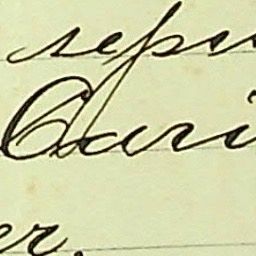 repu
Cari
er.